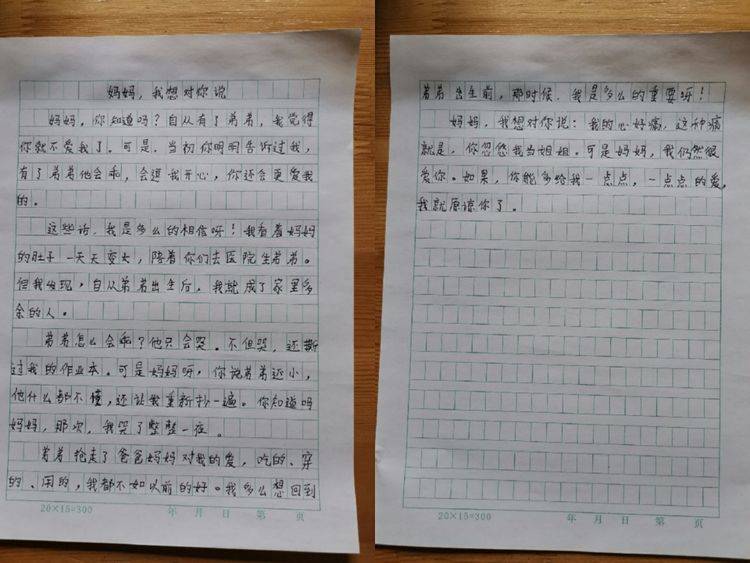 妈妈，我想对你说
妈妈，你知道吗？自从有了弟弟，我觉得
你就不爱我了。可是，当初你明明告诉过我，
有了弟弟他会乖，会逗我开心，你还会更爱我
的。
这些话，我是多么的相信呀！我看着妈妈
的肚子一天天变大，陪着你们去医院生弟弟。
但我发现，自从弟弟出生后，我就成了家里多
余的人。
弟弟怎么会乖？他只会哭。不但哭，还撕
过我的作业本。可是妈妈呀，你说弟弟还小，
他什么都不懂，还让我重新抄一遍。你知道吗
妈妈，那次，我哭了整整一夜。
弟弟抢走了爸爸妈妈对我的爱，吃的、穿
的、用的，我都不如以前的好。我多么想回到
20×15=300 年 月 日 第 页
弟弟出生前，那时候，我是多么的重要呀！
妈妈，我想对你说：我的心好痛，这种痛
就是，你忽悠我当姐姐。可是妈妈，我仍然很
爱你。如果，你能多给我一点点，一点点的爱，
我就原谅你了。
20×15=300 年 月 日 第 页